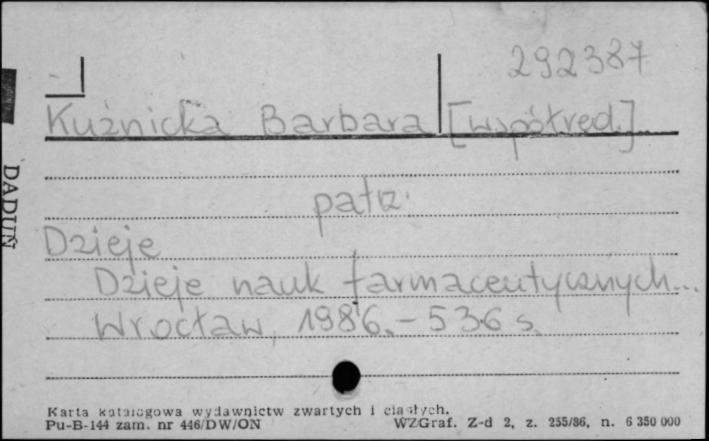 292387
Kuźnicka Barbara [współred.]
patrz:
Dzieje
Dzieje nauk farmaceutycznych...
Wrocław, 1986. – 536 s.
DADUŃ
Karta katalogowa wydawnictw zwartych i ciągłych.
Pu-B-144 zam. nr 446/DW/ON WZGraf. Z-d 2, z. 255/86, n. 6 350 000